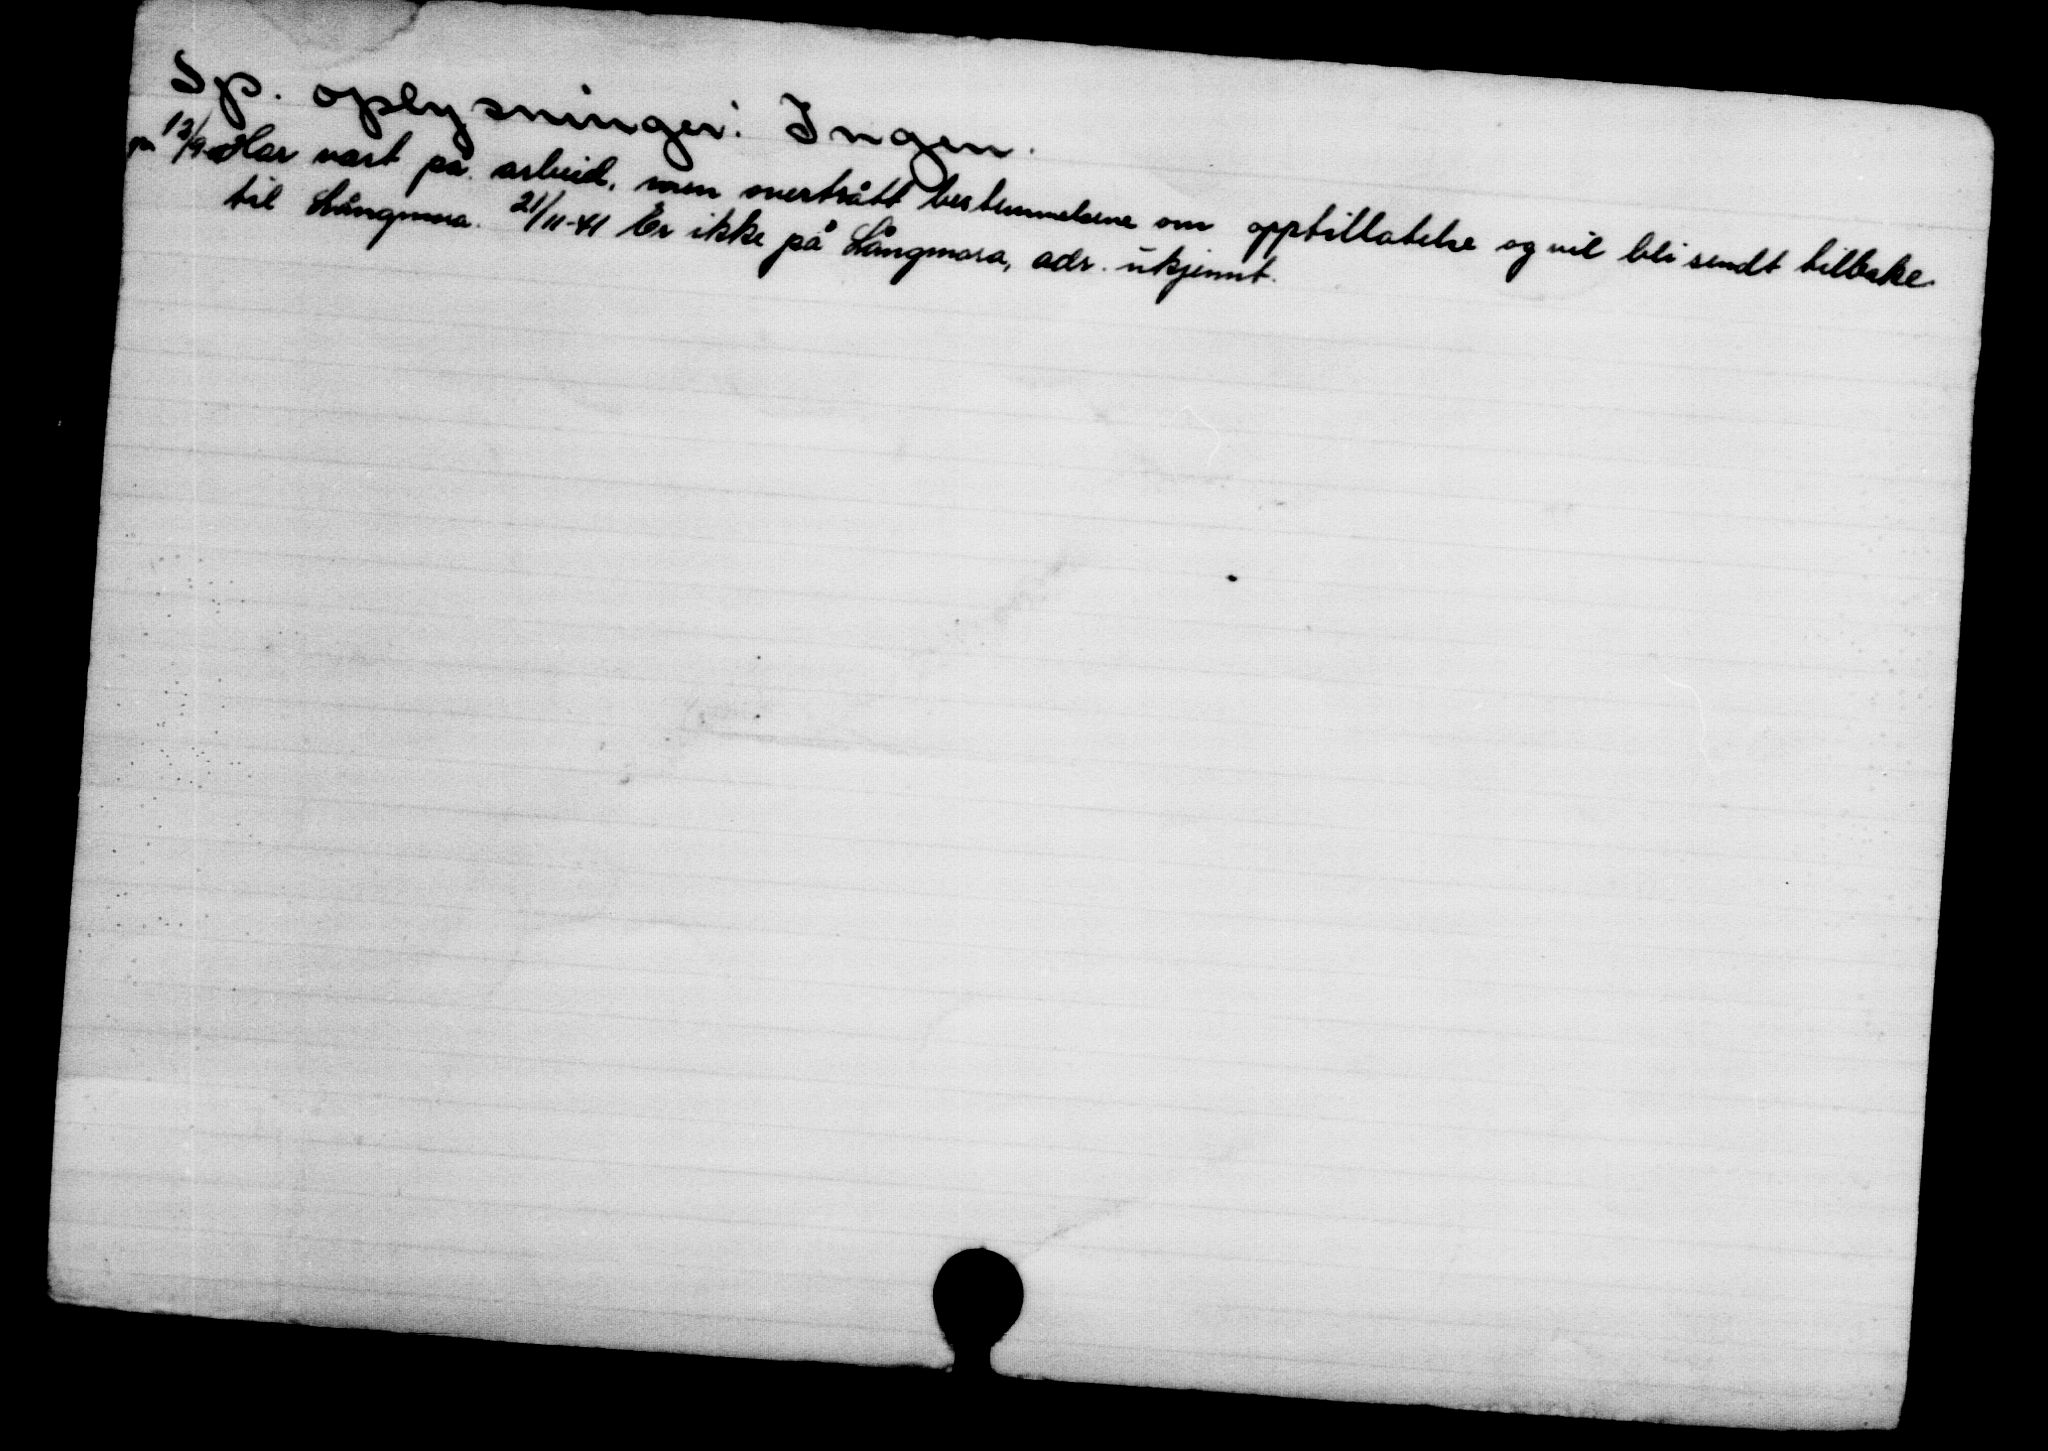 Sp. oplysninger: Ingen.
pr 12/9 Har vært på arbeid, men overtrått bestemmelsene om opptillatelse og vil bli sendt tilbake
til Långmora. 21/11-41 Er ikke på Långmora, adr. ukjennt.